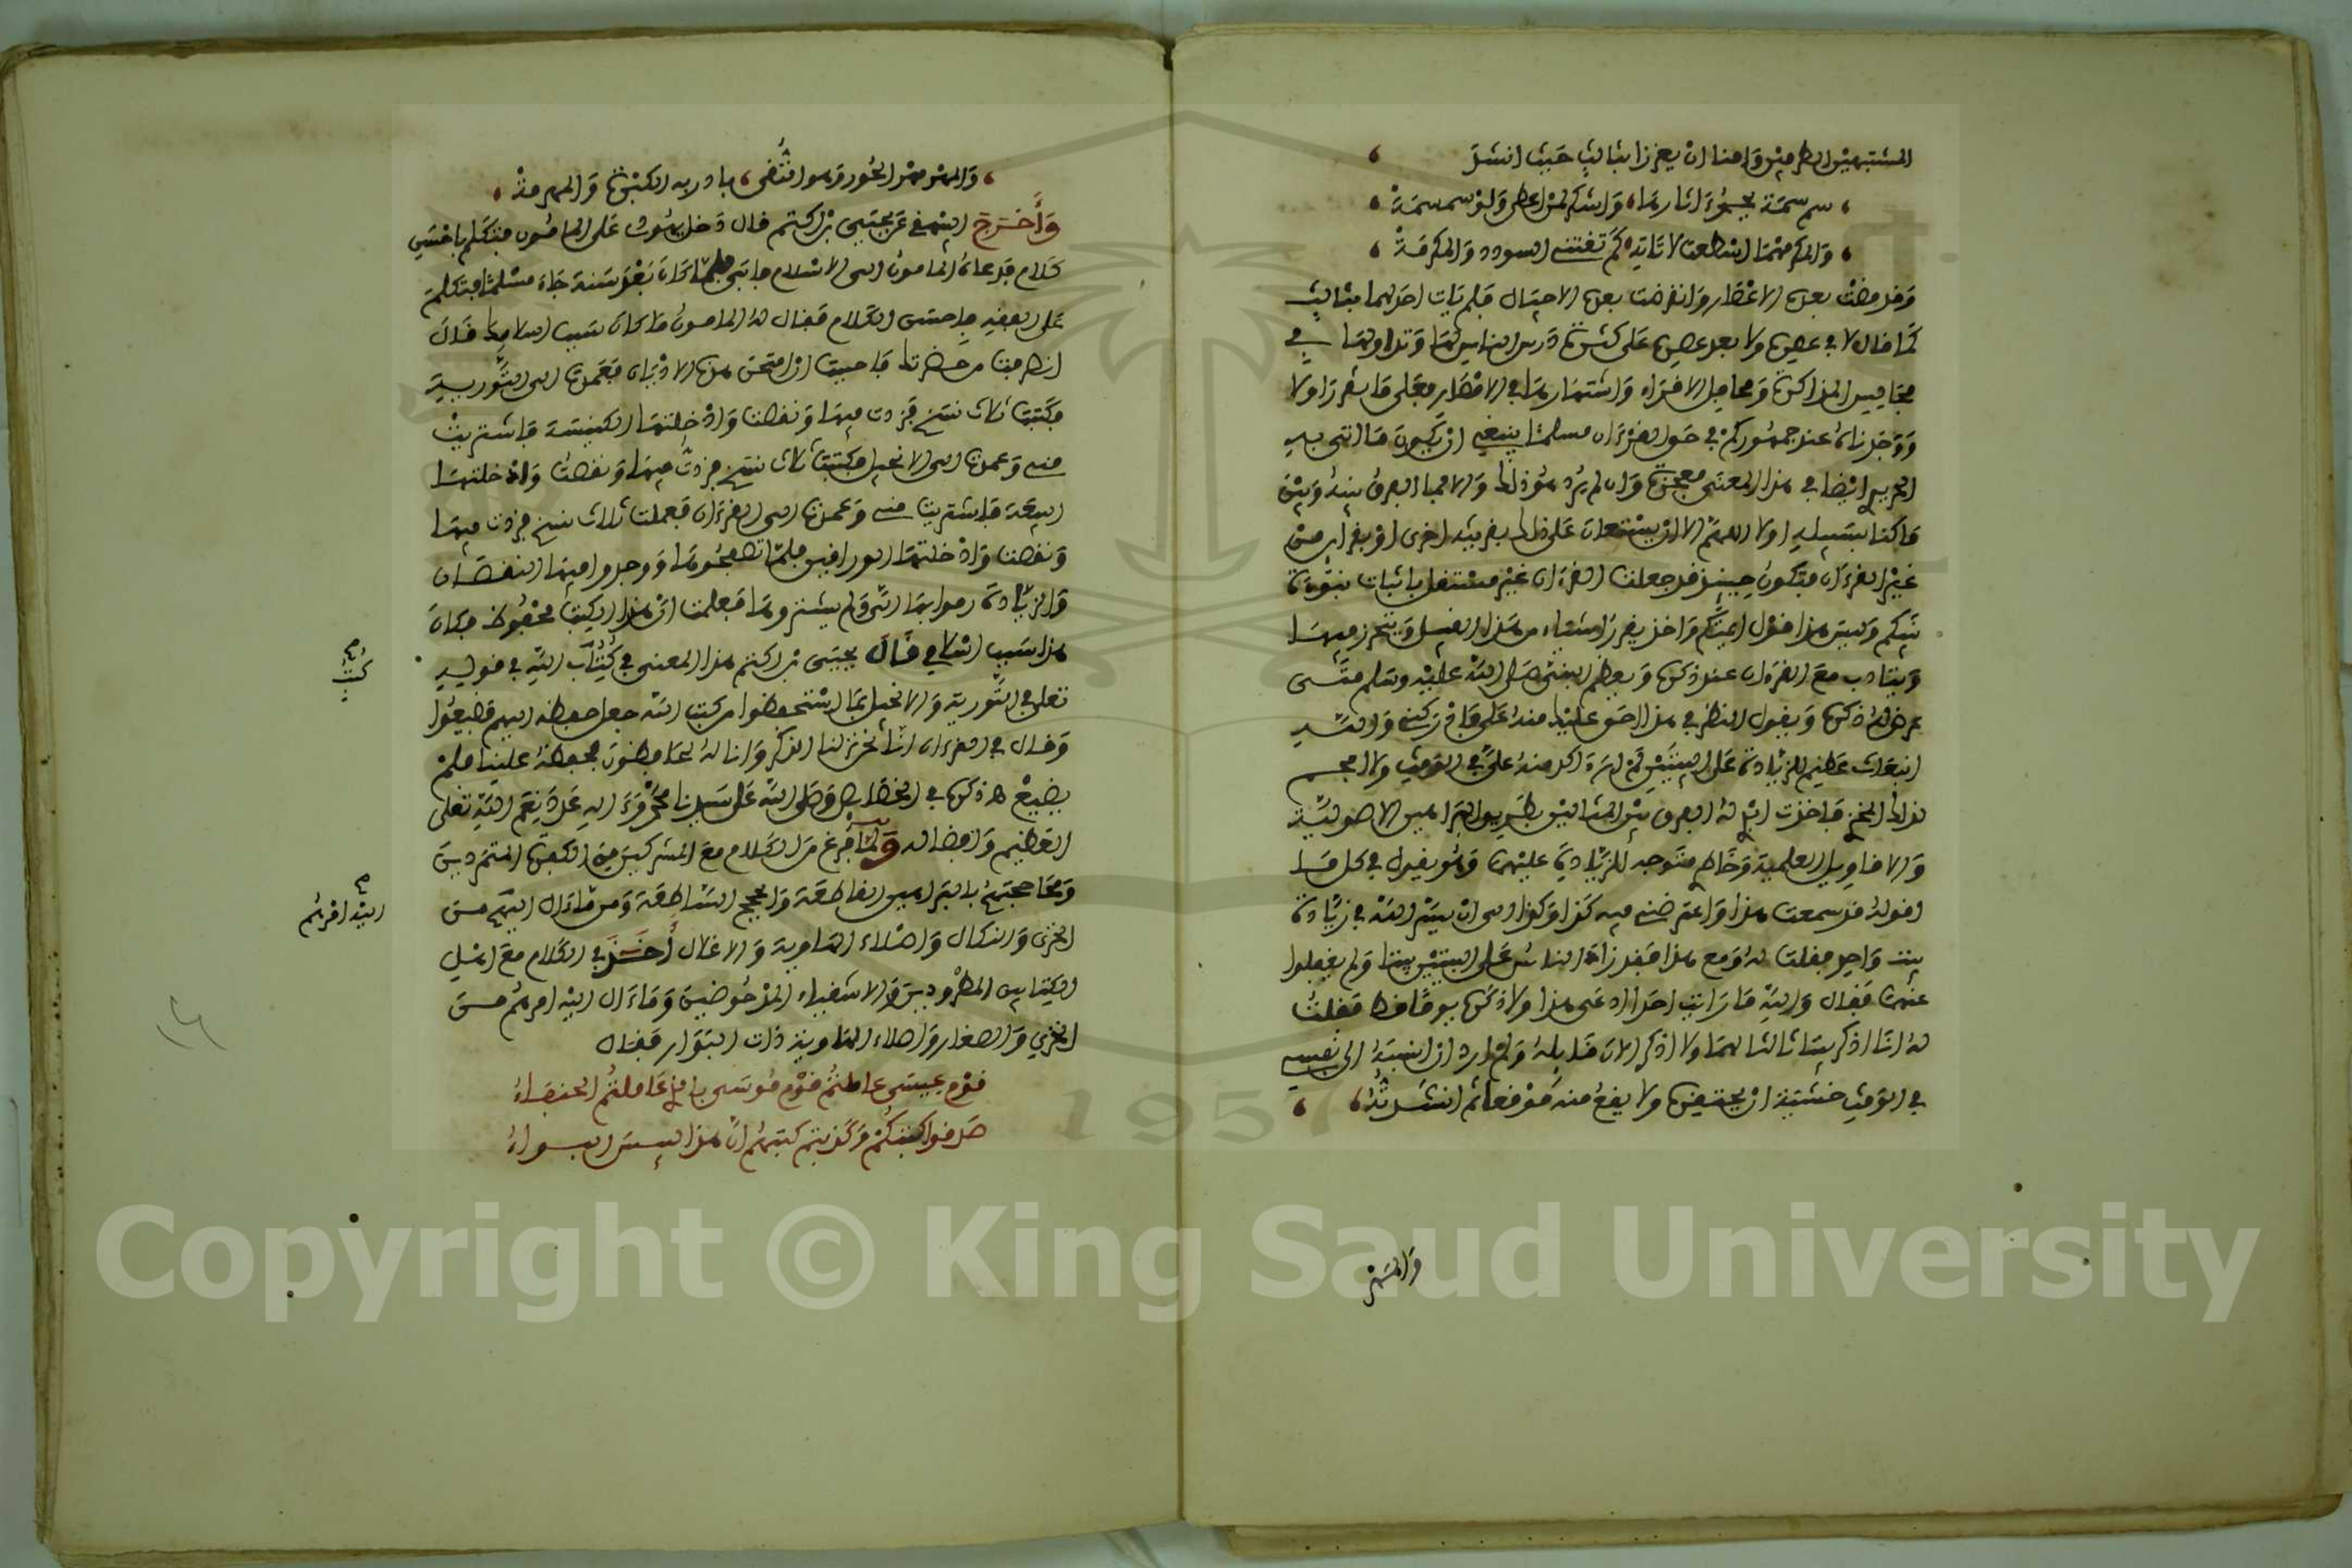 المشتبهين الطرفين وامنا ان يعززا بثالث حيث انشد
سم سمة يحمد اثارها، واشكر لمن اعطى ولو سمسمة
والمكر مهما استطعت لا تاته كم تقتني السودد والمكرمة
وقد مضت بعده الاعصار وانقرضت بعده الاجيال فلم يات احد لهما بثالث
كما قال لا في عصره ولا بعد عصره على كثرة درس الناس لها وتداولها في
مجاليس المذاكرة ومحافل الاقراء واشتهارها في الامصار فعلى ما تقرر اولا
ووجدناه عند جمهوركم في حق القرءان مسلما ينبغي ان يكون ما اتى به
الحريري ايضا في هذا المعنى معجزة وان لم يرد هو ذلك والا فما الفرق بينه وبين
ما كنا بسبيله اولا اللهم الا ان يستعان على ذلك بقرينة اخرى او بقراين من
غير القرءان فتكون حينئذ قد جعلت القرءان غير مستقل باثبات نبوءة
نبيكم وليس هذا قول ايمتكم واخذ يقرر اشياء من هذا القبيل ويتحرز فيها
ويتادب مع القرءان عند ذكره ويعظم النبي صلى الله عليه وسلم متى
عرض له ذكره ويقول النظر في هذا الحق عليك منه على
انبعاث عظيم للزيادة على البيتين ثم لم تكن منه علي في الوقت والا فحم
لذلك اللخن فاخذت ابين له الفرق بين المثالين بطريق البراهين الاصولية
والاقاويل العلمية وخاطري متوجه للزيادة عليهما وهو يقول في كل ما
اقوله قد سمعت هذا واعترضني فيه كذا وكذا الى ان يسر الله في زيادة
بيت واحد فقلت له ومع هذا فقد زاد الناس على البيتين بيتا ولم يغفلوا
عنهما فقال والله ما رايت احدا ادعى هذا ولا ذكره يوما قط فقلت
له انا اذكر بيتا ثالثا لهما ولا اذكر الان قايله ولم ارد ان انسبه الى نفسي
في الوقت خشية ان يحتقره ولا يقع منه موقعا ثم انشدته
والمهر
والمهر مهر الحور وهو التقى، بادر به الكبرة والمهرمة
وأخرج البيهقي عن يحيى بن اكتم قال دخل يهودي على المامون فتكلم باحسن
كلام فدعاه المامون الى الاسلام فابى فلما كان بعد سنة جاء مسلما فتكلم
على الفقه فاحسن الكلام فقال له المامون ما كان سبب اسلامك قال
انصرفت من حضرتك فاحببت ان امتحن هذه الاديان فعمدت الى التورية
فكتبت ثلاث نسخ فزدت فيها ونقصت وادخلتها الكنيسة فاشتريت
مني وعمدت الى الانجيل فكتبت ثلاث نسخ فزدت فيها ونقصت وادخلتها
البيعة فاشتريت مني وعمدت الى القرءان فعملت ثلاث نسخ فزدت فيها
ونقصت وادخلتها الوراقين فلما تصفحوها ووجدوا فيها النقصان
والزيادة رموا بها الي ولم يشتروها فعلمت ان هذا الكتاب محفوظ فكان
هذا سبب اسلامي قال يحيى بن اكتم هذا المعنى في كتاب الله في قوله
تعلى في التورية والانجيل بما استحفظوا من كتب الله جعل حفظه اليهم فضيعوا
وقال في القرءان انا نحن نزلنا الذكر وانا له لحافظون بحفظه علينا فلم
يضيع ه ذكره في الخصايص وصلى الله على سيدنا محمد وءاله عدد نعم الله تعلى
العظيم وافضاله ولما فرغ من الكلام مع المشركين من الكفرة المتمردين
ومحاججتهم بالبراهين القاطعة والحجج الساطعة ومن ماءال اليهم من
الخزى والنكال واصلاء الهاوية والاغلال أخذ في الكلام مع اهل
الكتابين المطرودين والاشقياء المدحوضين وماءال اليه امرهم من
الخزي والصغار واصلاء الهاوية ذات البوار فقال
قوم عيسى عاملتم قوم موسى بالذي عاملتكم الحنفاء
صدقوا كتبكم وكذبتم كتبهم ان هذا لبيس البواء
كتب
اليه امرهم